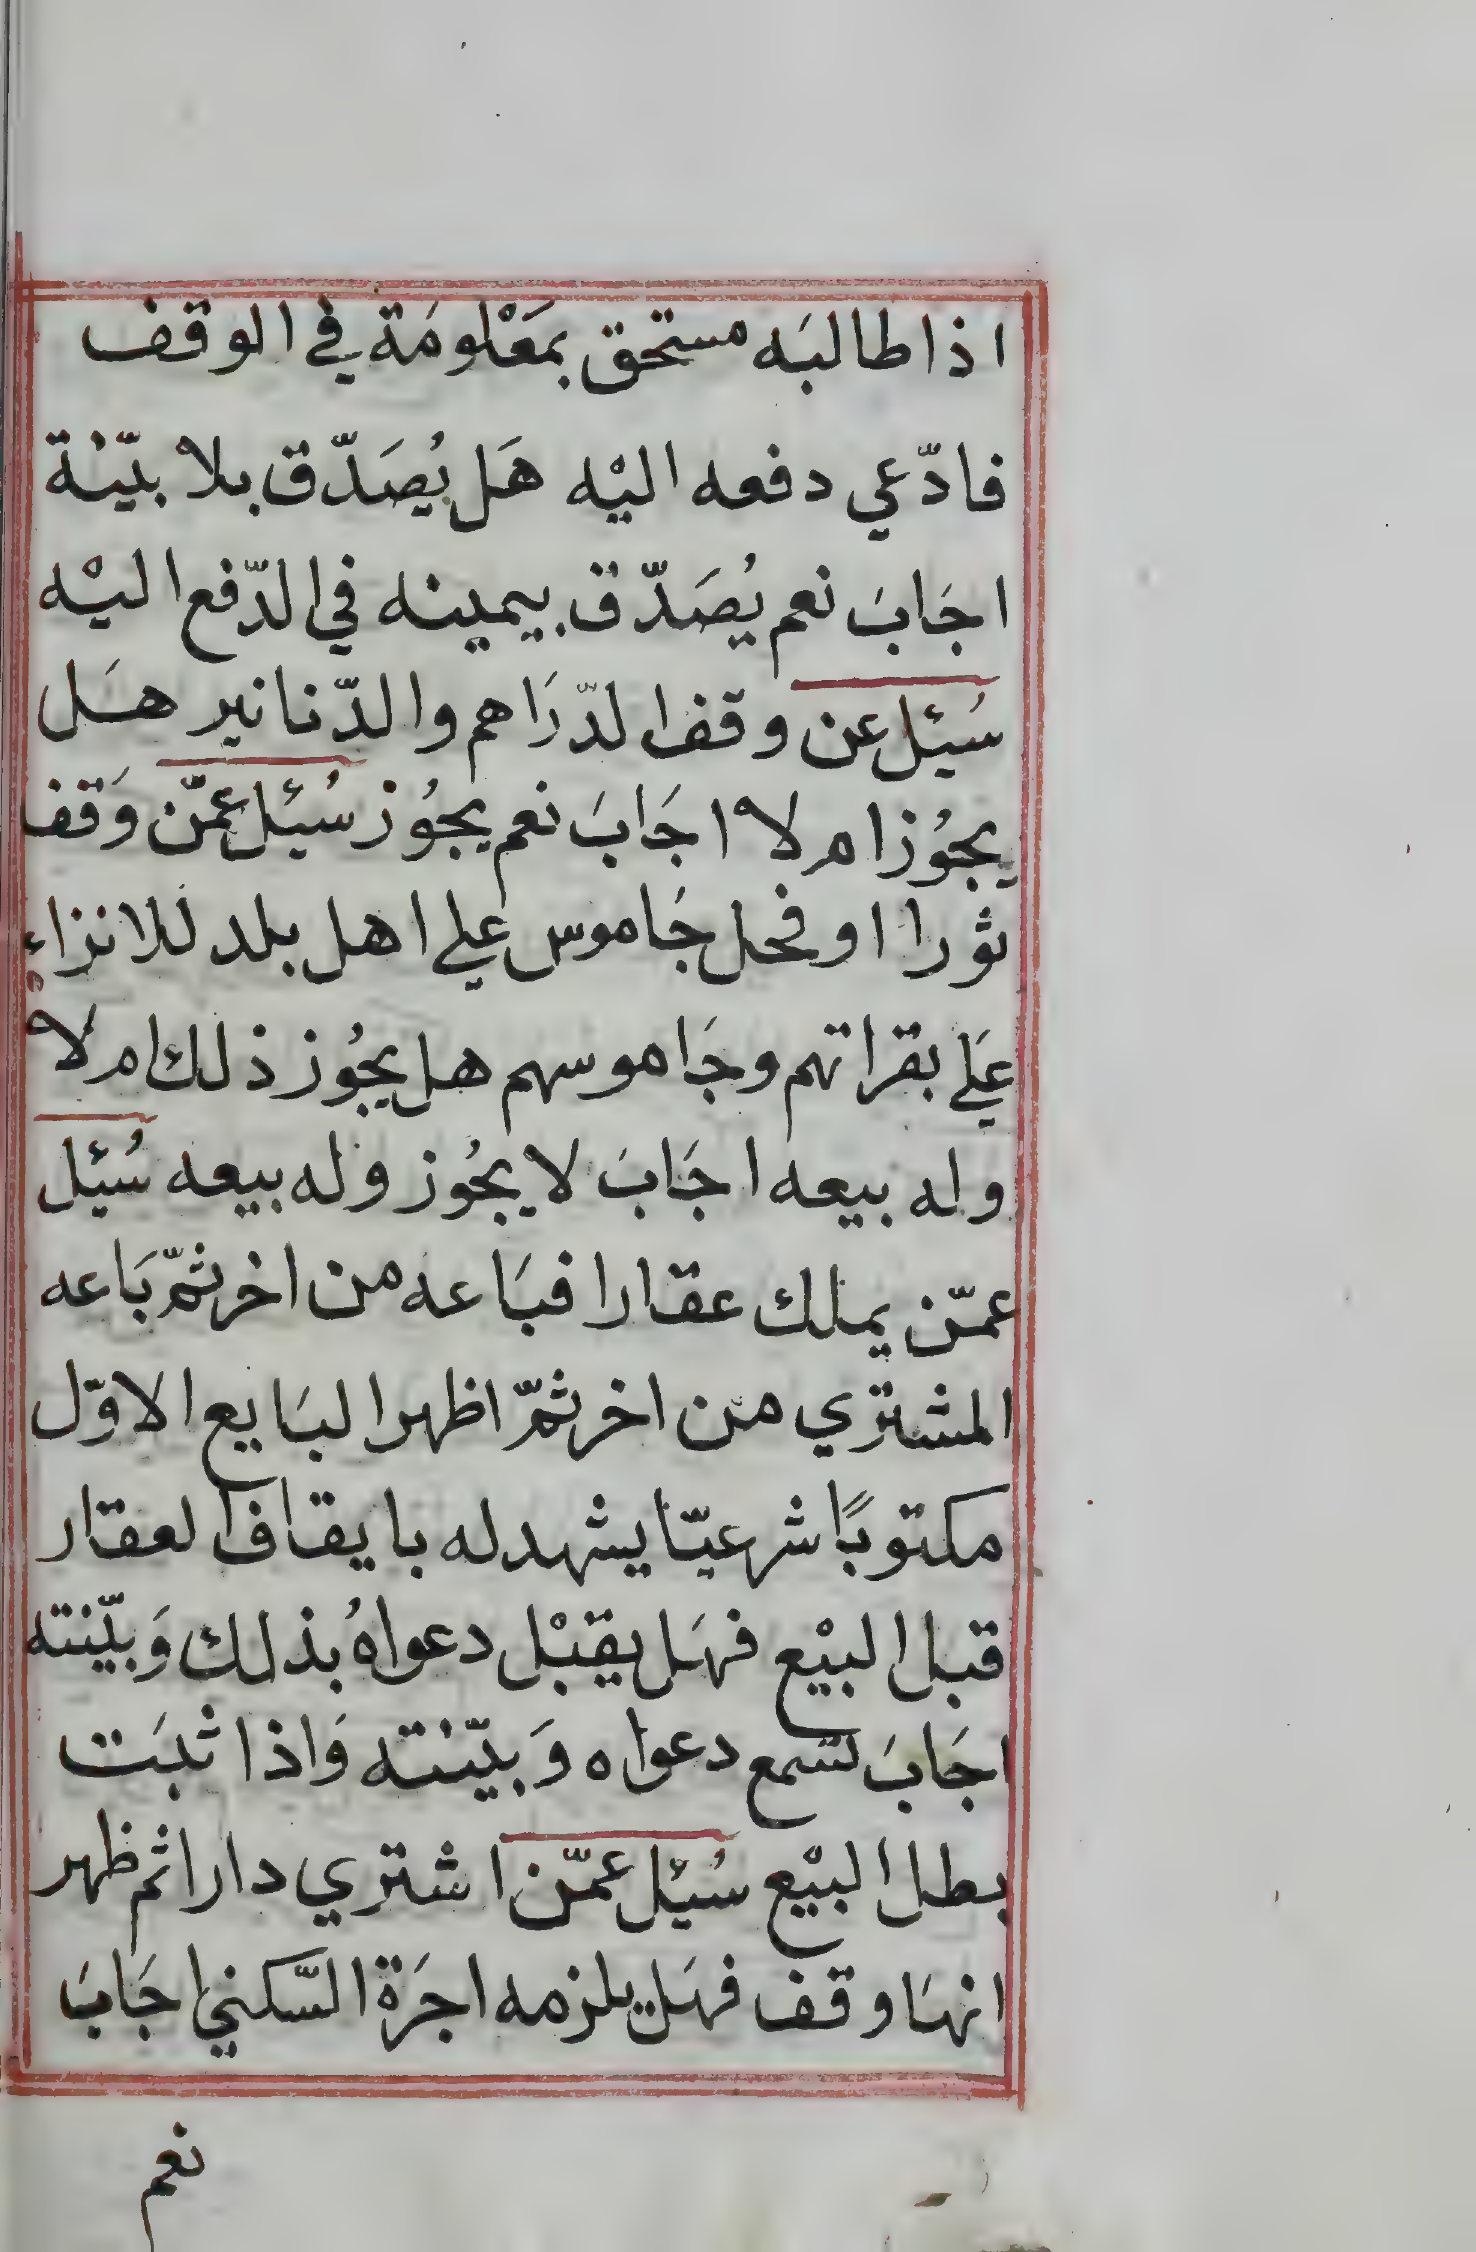 اذا طالبَه مستحق بمَعْلومَة في الوقف
فادّعي دفعه اليْه هَل يُصَدّق بلا بيّنة
اجَابَ نعم يُصَدّق بيمينه في الدّفع اليْه
سُئِل عن وقف الدّرَاهم والدّنانير هَل
يجوُز ام لا اجَابَ نعم يجوُز سُئِل عمّن وَقف
ثورا او فحل جَاموس علي اهل بلد للانزاء
عَلي بقراتهم وجَاموسهم هل يجوُز ذلك ام لا
وله بيعه اجَابَ لا يجوُز وله بيعه سُئِل
عمّن يملك عقارا فبَاعه من اخر ثمّ بَاعه
المشتري من اخر ثمّ اظهر البَايع الاوّل
مكتوبًا شرعيّا يشهد له بايقاف العقار
قبل البيْع فهَل يقبْل دعواهُ بذلك وَبيّنته
اجَابَ تسمع دعواه وَبيّنته وَاذا ثبَت
بطل البيْع سُئِل عمّن اشتري دارا ثم ظهر
انهَا وقف فهَل يلزمه اجرَة السّكني اجَابَ
نعم